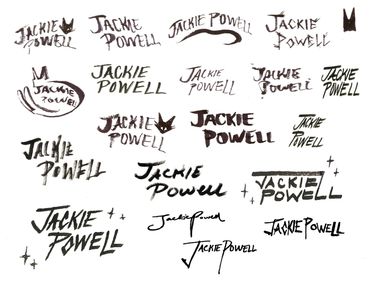 JACKIE
POWELL
JACKIE
POWELL
JACKIE POWELL
JACKIE
POWELL
JACKIE
POWELL
JACKIE
POWELL
JACKIE
POWELL
JACKIE
POWELL
JACKIE
POWELL
JACKIE
POWELL
JACKIE
POWELL
JACKIE
POWELL
JACKIE
POWELL
JACKIE
POWELL
JACKIE
POWELL
JACKIE
POWELL
Jackie Powell
JACKIE POWELL
JACKIE POWELL